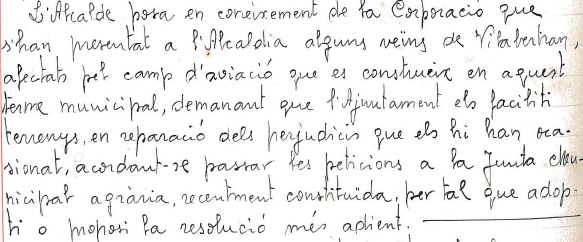 L'Alcalde posa en coneixement de la Corporació que
s'han presentat a l'Alcaldia alguns veïns de Vilabertran,
afectats pel camp d'aviació que es construeix en aquest
terme municipal, demanant que l'Ajuntament els faciliti
terrenys, en reparació dels perjudicis que els hi han oca-
sionat, acordant-se passar les peticions a la Junta Mu-
nicipal agrària, recentment constituida, per tal que adop-
ti o proposi la resolució més adient.